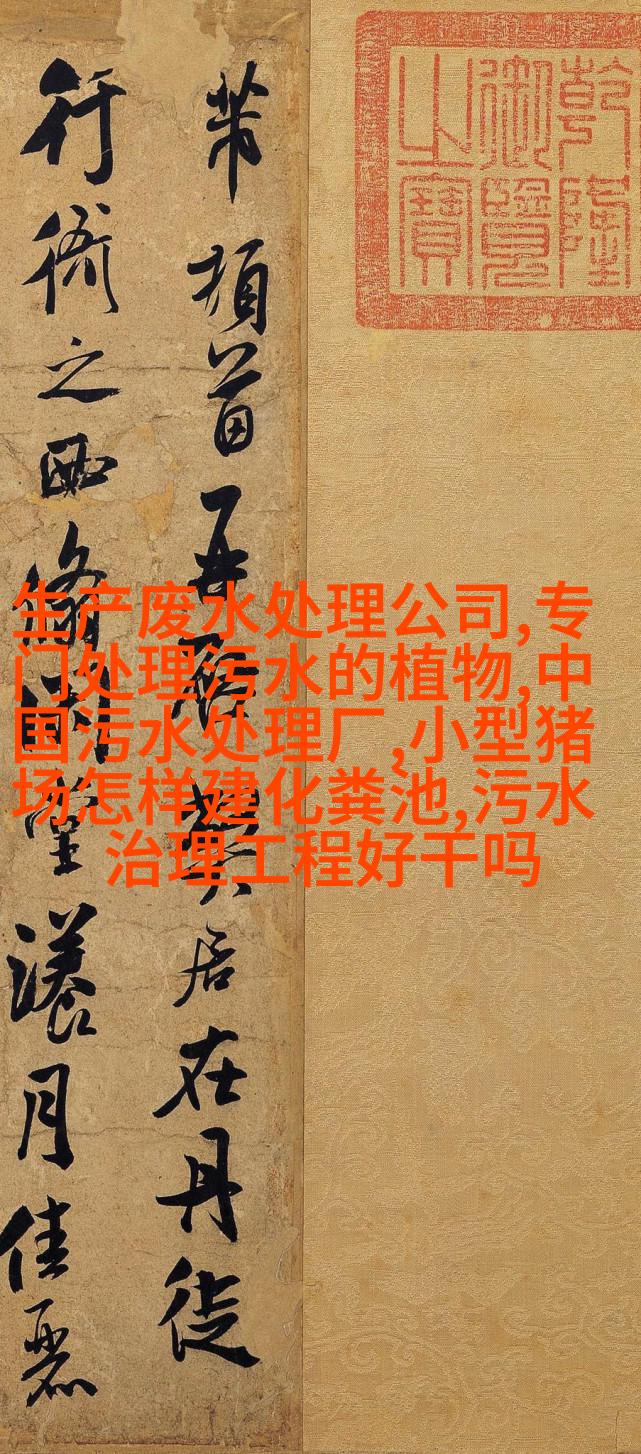 乾隆
御覽
之寶
芾頓首再啓弊居在丹徒
行衙之西翛閑堂漾月佳麗
生产废水处理公司,专
门处理污水的植物,中
国污水处理厂,小型猪
场怎样建化粪池,污水
治理工程好干吗